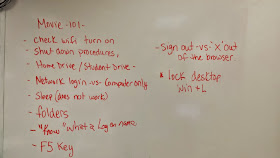 Movie -101-
- check wifi turn on
- shut down procedures,
- Home Drive / Student Drive -
- Network login -vs- Computer only
- Sleep (does not work)
- folders
- "Know" what a log on name
- F5 Key
- Sign out -vs- "X" out
of the browser.
* lock desktop
win + L